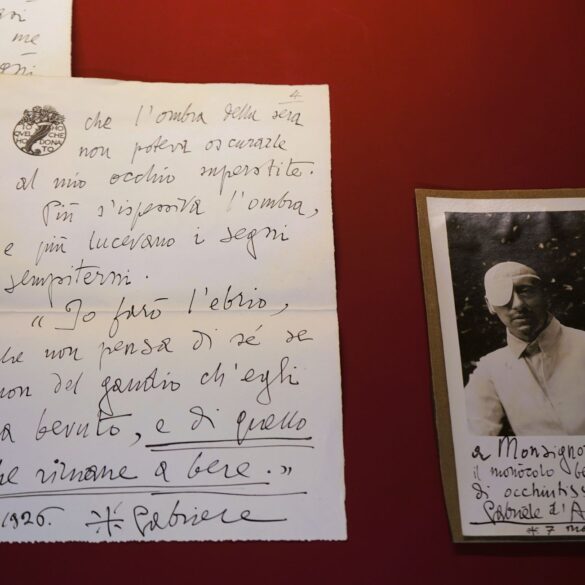 me
4
IO HO
QVEL CHE
HO DONA
TO
che l'ombra della sera
non poteva oscurarle
al mio occhio superstite.
Più s'ispessiva l'ombra,
e più lucevano i segni
sempiterni.
« Io farò l'ebrio,
che non pensa di sé se
non del gaudio ch'egli
ha bevuto, e di quello
che rimane a bere. »
1926. * Gabriele
a Monsignor
il monòcolo be
di occhiutiss
Gabriele d'A
* 7 ma